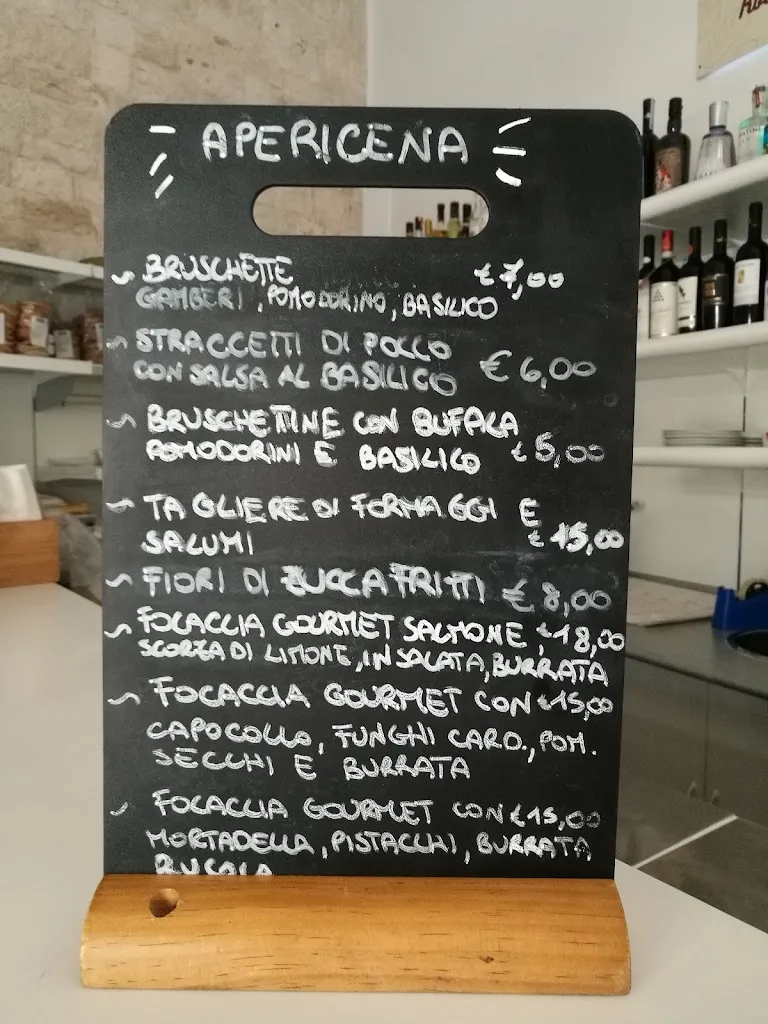 APERICENA
BRUSCHETTE € 7,00
GAMBERI, POMODORINO, BASILICO
STRACCETTI DI POLLO
CON SALSA AL BASILICO € 6,00
BRUSCHETTINE CON BUFALA
POMODORINI E BASILICO € 5,00
TAGLIERE DI FORMAGGI E
SALUMI € 15,00
FIORI DI ZUCCA FRITTI € 8,00
FOCACCIA GOURMET SALMONE, €18,00
SCORZA DI LIMONE, INSALATA, BURRATA
FOCACCIA GOURMET CON €15,00
CAPOCOLLO, FUNGHI CARD., POM.
SECCHI E BURRATA
FOCACCIA GOURMET CON €15,00
MORTADELLA, PISTACCHI, BURRATA
RUCOLA